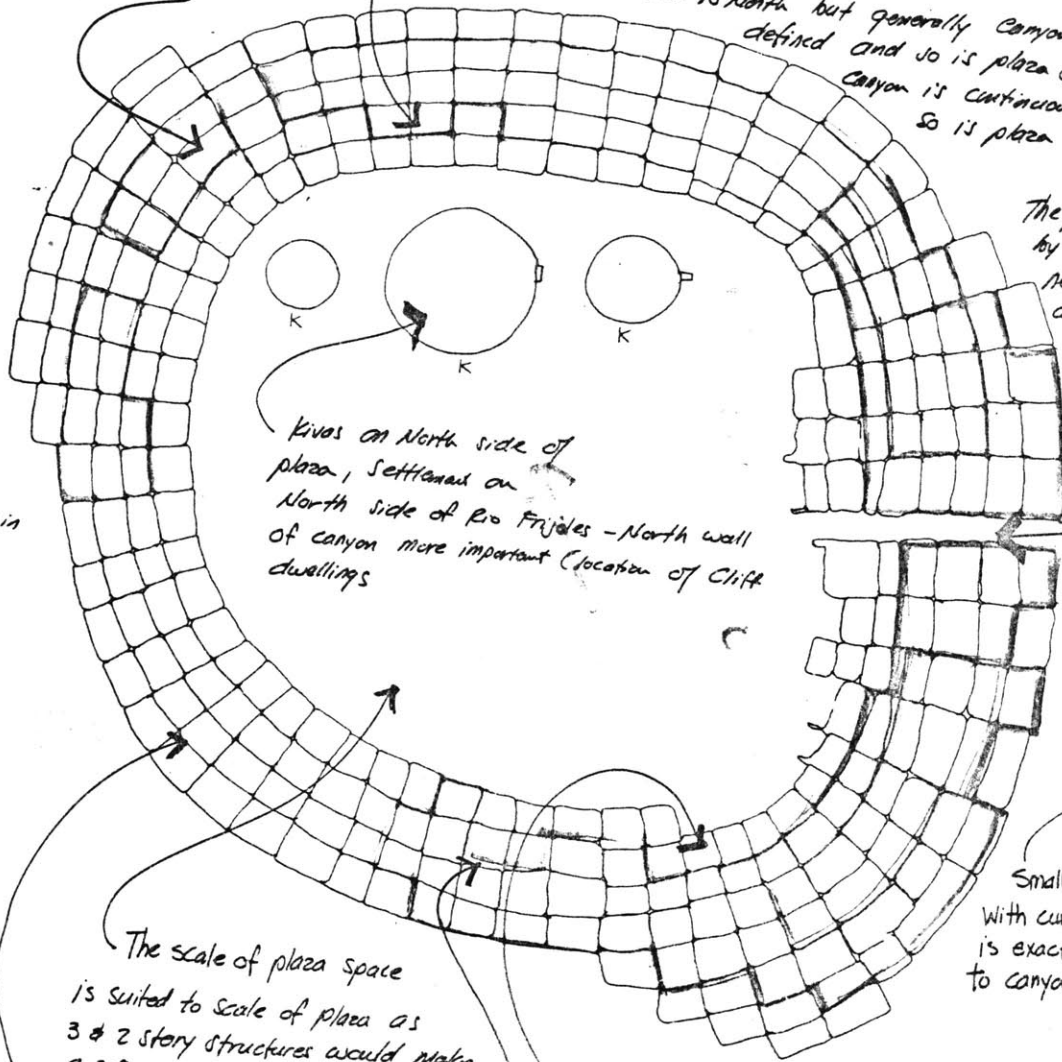 North but generally Canyon
defined and so is plaza
canyon is continuous
so is plaza
The
by
in
K
K
K
Kivas on North side of
plaza, settlement on
North side of Rio Frijoles - North wall
of canyon more important (location of Cliff
dwellings
Small
With
is
to canyon
The scale of plaza space
is suited to scale of plaza as
3 & 2 story structures would make